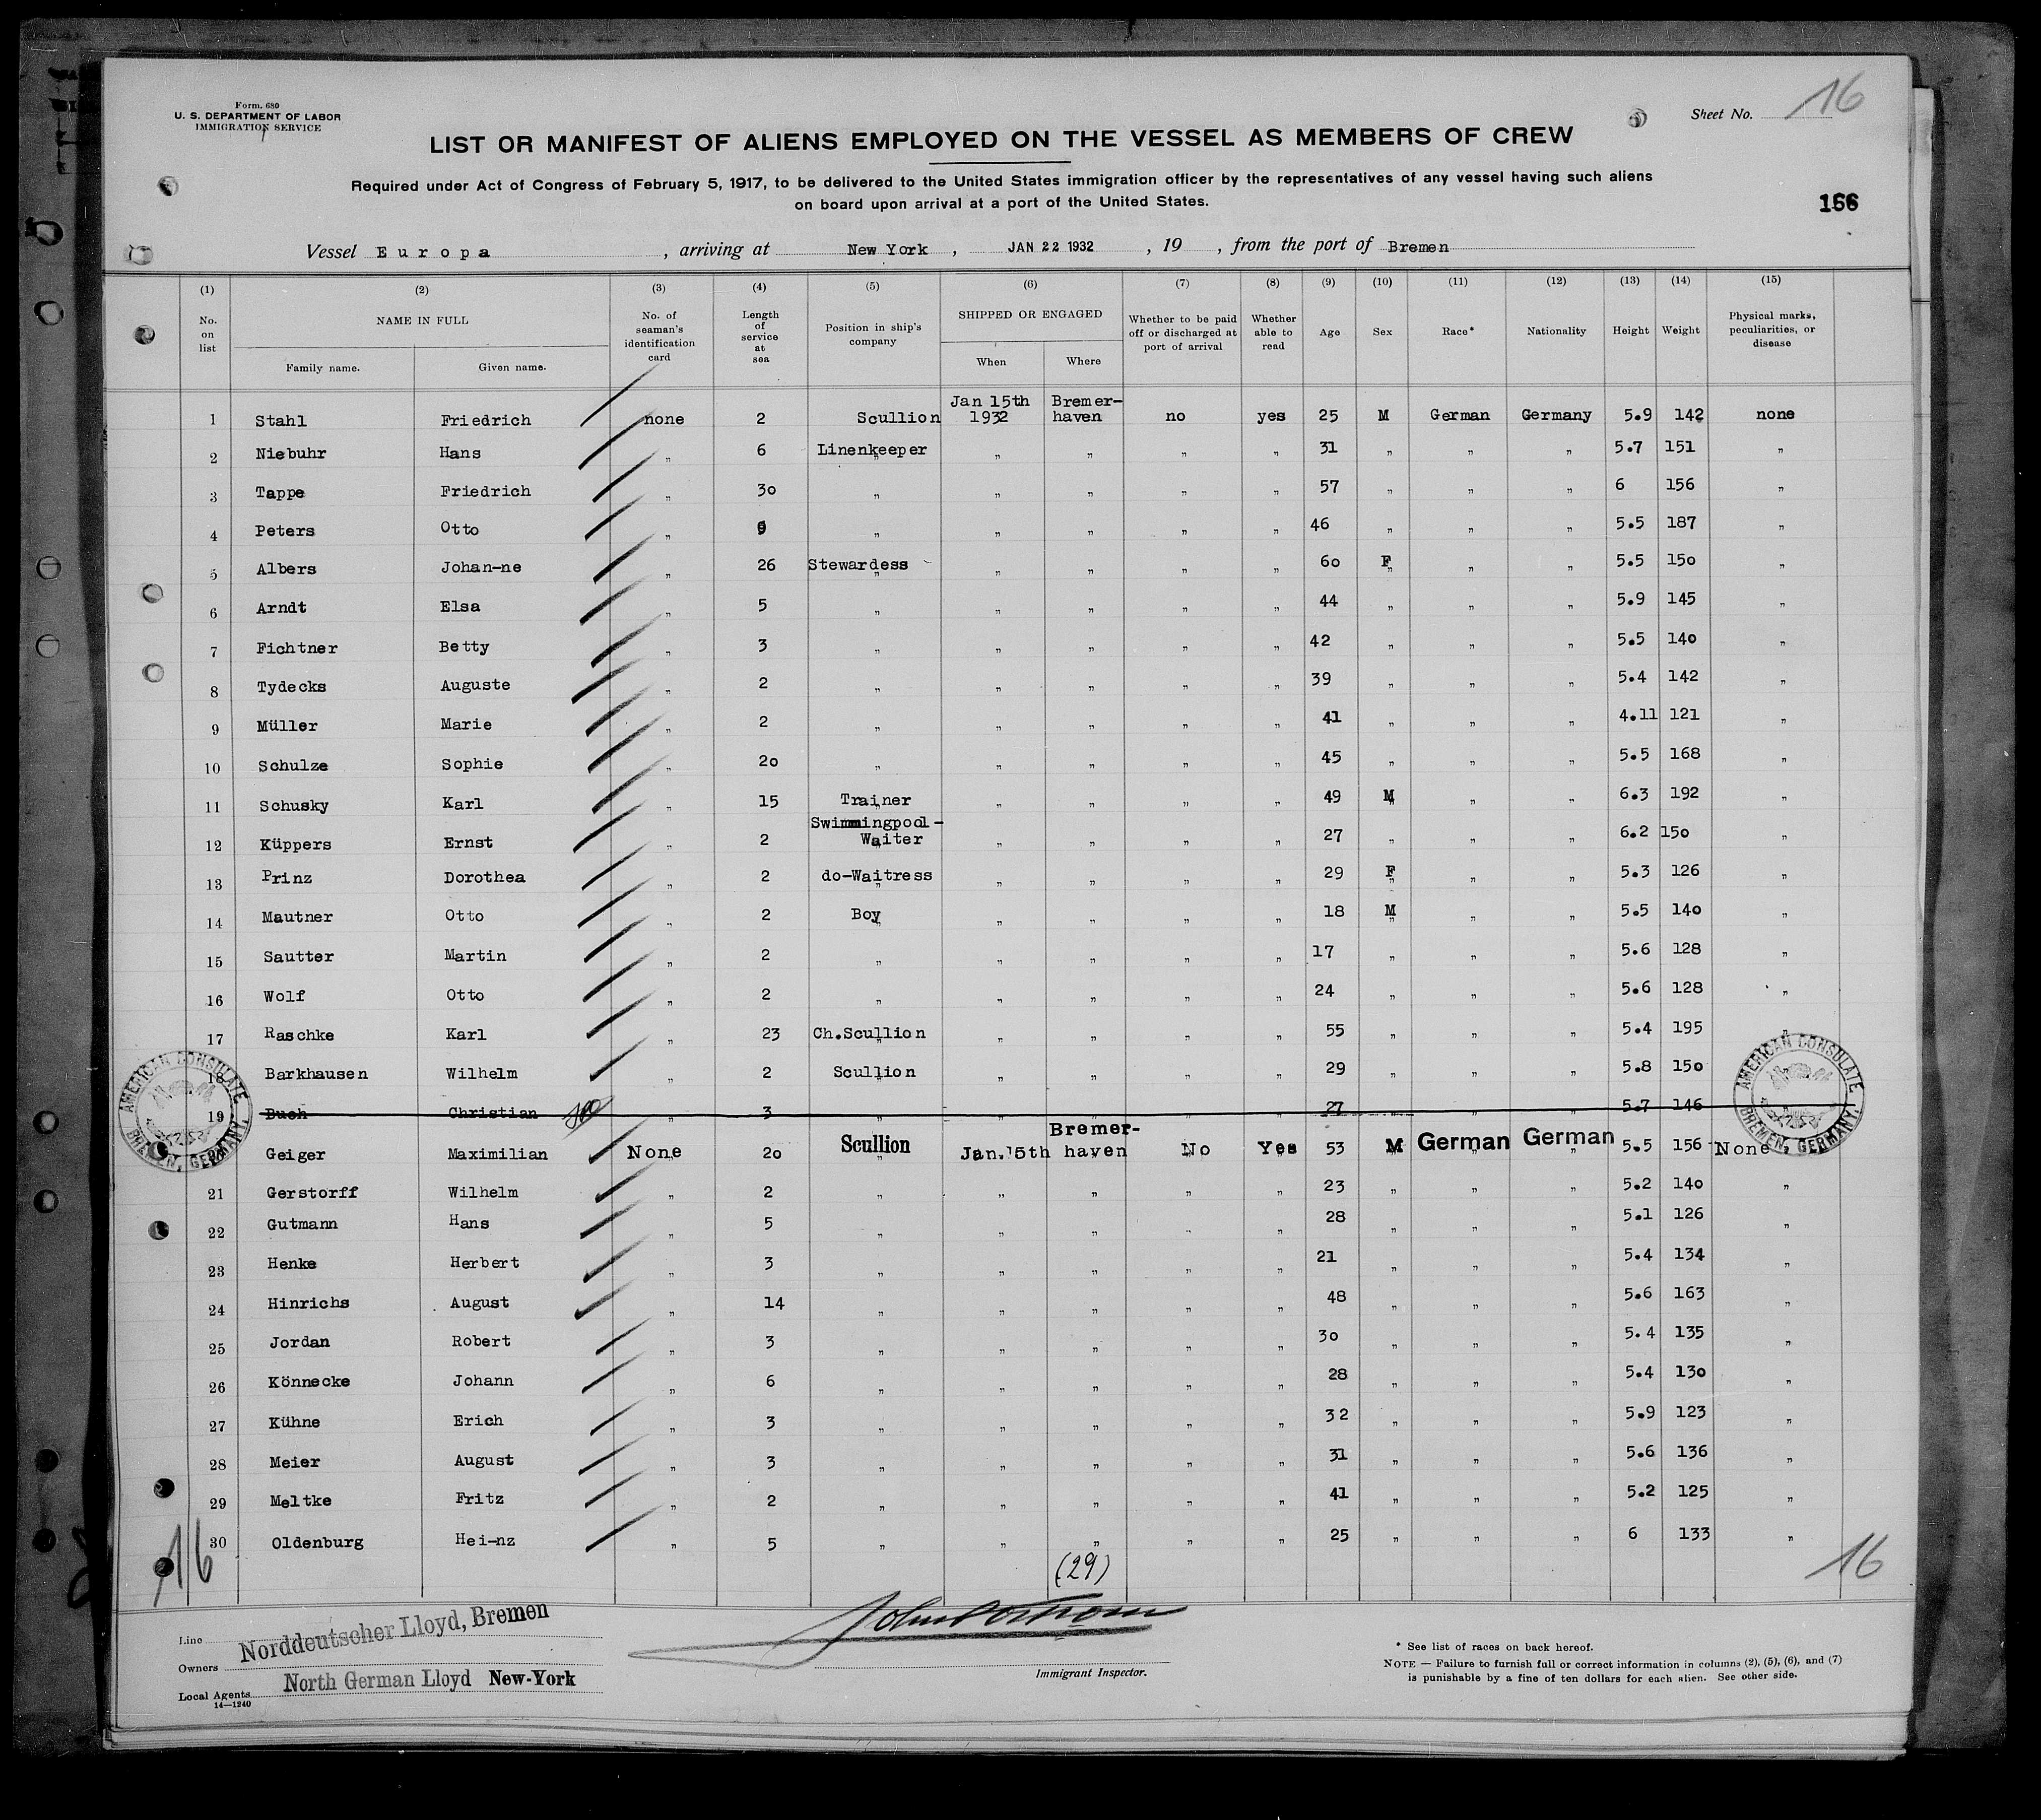 Form. 680
U. S. DEPARTMENT OF LABOR
IMMIGRATION SERVICE
Sheet No. 16
LIST OR MANIFEST OF ALIENS EMPLOYED ON THE VESSEL AS MEMBERS OF CREW
Required under Act of Congress of February 5, 1917, to be delivered to the United States immigration officer by the representatives of any vessel having such aliens
on board upon arrival at a port of the United States.
166
Vessel Europa , arriving at New York , JAN 22 1932 , 19 , from the port of Bremen
(1) (2) (3) (4) (5) (6) (7) (8) (9) (10) (11) (12) (13) (14) (15)
No. on list NAME IN FULL Family name. Given name. No. of seaman's identification card Length of service at sea Position in ship's company SHIPPED OR ENGAGED When Where Whether to be paid off or discharged at port of arrival Whether able to read Age Sex Race* Nationality Height Weight Physical marks, peculiarities, or disease
1 Stahl Friedrich none 2 Scullion Jan 15th 1932 Bremer-haven no yes 25 M German Germany 5.9 142 none
2 Niebuhr Hans " 6 Linenkeeper " " " " 31 " " " 5.7 151 "
3 Tappe Friedrich " 30 " " " " " 57 " " " 6 156 "
4 Peters Otto " 9 " " " " " 46 " " " 5.5 187 "
5 Albers Johan-ne " 26 Stewardess " " " " 60 F " " 5.5 150 "
6 Arndt Elsa " 5 " " " " " 44 " " " 5.9 145 "
7 Fichtner Betty " 3 " " " " " 42 " " " 5.5 140 "
8 Tydecks Auguste " 2 " " " " " 39 " " " 5.4 142 "
9 Müller Marie " 2 " " " " " 41 " " " 4.11 121 "
10 Schulze Sophie " 20 " " " " " 45 " " " 5.5 168 "
11 Schusky Karl " 15 Trainer " " " " 49 M " " 6.3 192 "
12 Küppers Ernst " 2 Swimmingpool-Waiter " " " " 27 " " " 6.2 150 "
13 Prinz Dorothea " 2 do-Waitress " " " " 29 F " " 5.3 126 "
14 Mautner Otto " 2 Boy " " " " 18 M " " 5.5 140 "
15 Sautter Martin " 2 " " " " " 17 " " " 5.6 128 "
16 Wolf Otto " 2 " " " " " 24 " " " 5.6 128 "
17 Raschke Karl " 23 Ch.Scullion " " " " 55 " " " 5.4 195 "
18 Barkhausen Wilhelm " 2 Scullion " " " " 29 " " " 5.8 150
19 Buch Christian " 3 " " " " " 27 " " " 5.7 146
Geiger Maximilian None 20 Scullion Jan.15th Bremer-haven No Yes 53 M German German 5.5 156 None
21 Gerstorff Wilhelm " 2 " " " " " 23 " " " 5.2 140 "
22 Gutmann Hans " 5 " " " " " 28 " " " 5.1 126 "
23 Henke Herbert " 3 " " " " " 21 " " " 5.4 134 "
24 Hinrichs August " 14 " " " " " 48 " " " 5.6 163 "
25 Jordan Robert " 3 " " " " " 30 " " " 5.4 135 "
26 Könnecke Johann " 6 " " " " " 28 " " " 5.4 130 "
27 Kühne Erich " 3 " " " " " 32 " " " 5.9 123 "
28 Meier August " 3 " " " " " 31 " " " 5.6 136 "
29 Meltke Fritz " 2 " " " " " 41 " " " 5.2 125 "
30 Oldenburg Hei-nz " 5 " " " " " 25 " " " 6 133 "
AMERICAN CONSULATE BREMEN, GERMANY.
AMERICAN CONSULATE BREMEN, GERMANY.
16 (29) 16
Line
Owners Norddeutscher Lloyd, Bremen
Local Agents North German Lloyd New-York
14—1240
Immigrant Inspector.
* See list of races on back hereof.
NOTE — Failure to furnish full or correct information in columns (2), (5), (6), and (7)
is punishable by a fine of ten dollars for each alien. See other side.